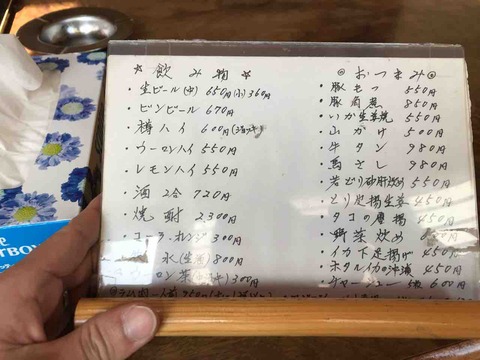 ☆ 飲み物 ☆
・生ビール(中) 650円(小)360円
・ビンビール 670円
・樽ハイ 600円
・ウーロンハイ 550円
・レモンハイ 550円
・酒 2合 720円
・焼酎 2,300円
・コーラ・オレンジ 300円
氷 800円
ロン茶 300円
◎おつまみ◎
・豚もつ 550円
・豚角煮 850円
・いか生姜焼 550円
・山かけ 500円
・牛タン 980円
・馬さし 980円
・若どり砂肝炒め 550円
・とり足揚生姜 450円
・タコの唐揚 450円
・野菜炒め
・イカ下足揚げ 450円
・ホタルイカの沖漬 450円
・チャーシュー 5枚 600円